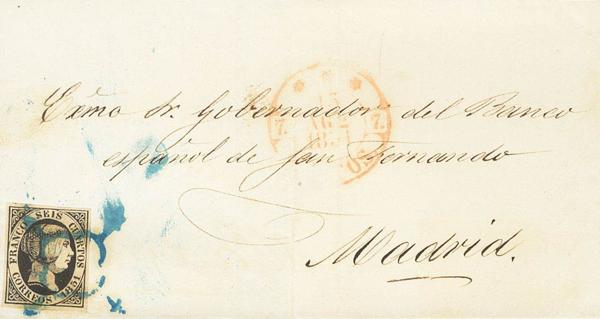 Exmo Sr. Gobernador del Banco
español de San Fernando
Madrid.
FRANCO SEIS CUARTOS
CORREOS 1851
15
Z. Z.